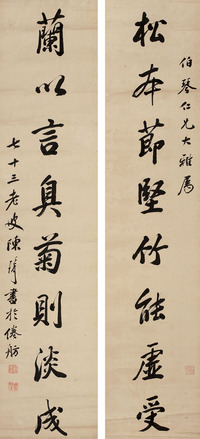 伯琴仁兄大雅屬
松本節堅竹能虛受
蘭以言臭菊則淡成
七十三老叟陳書於舫